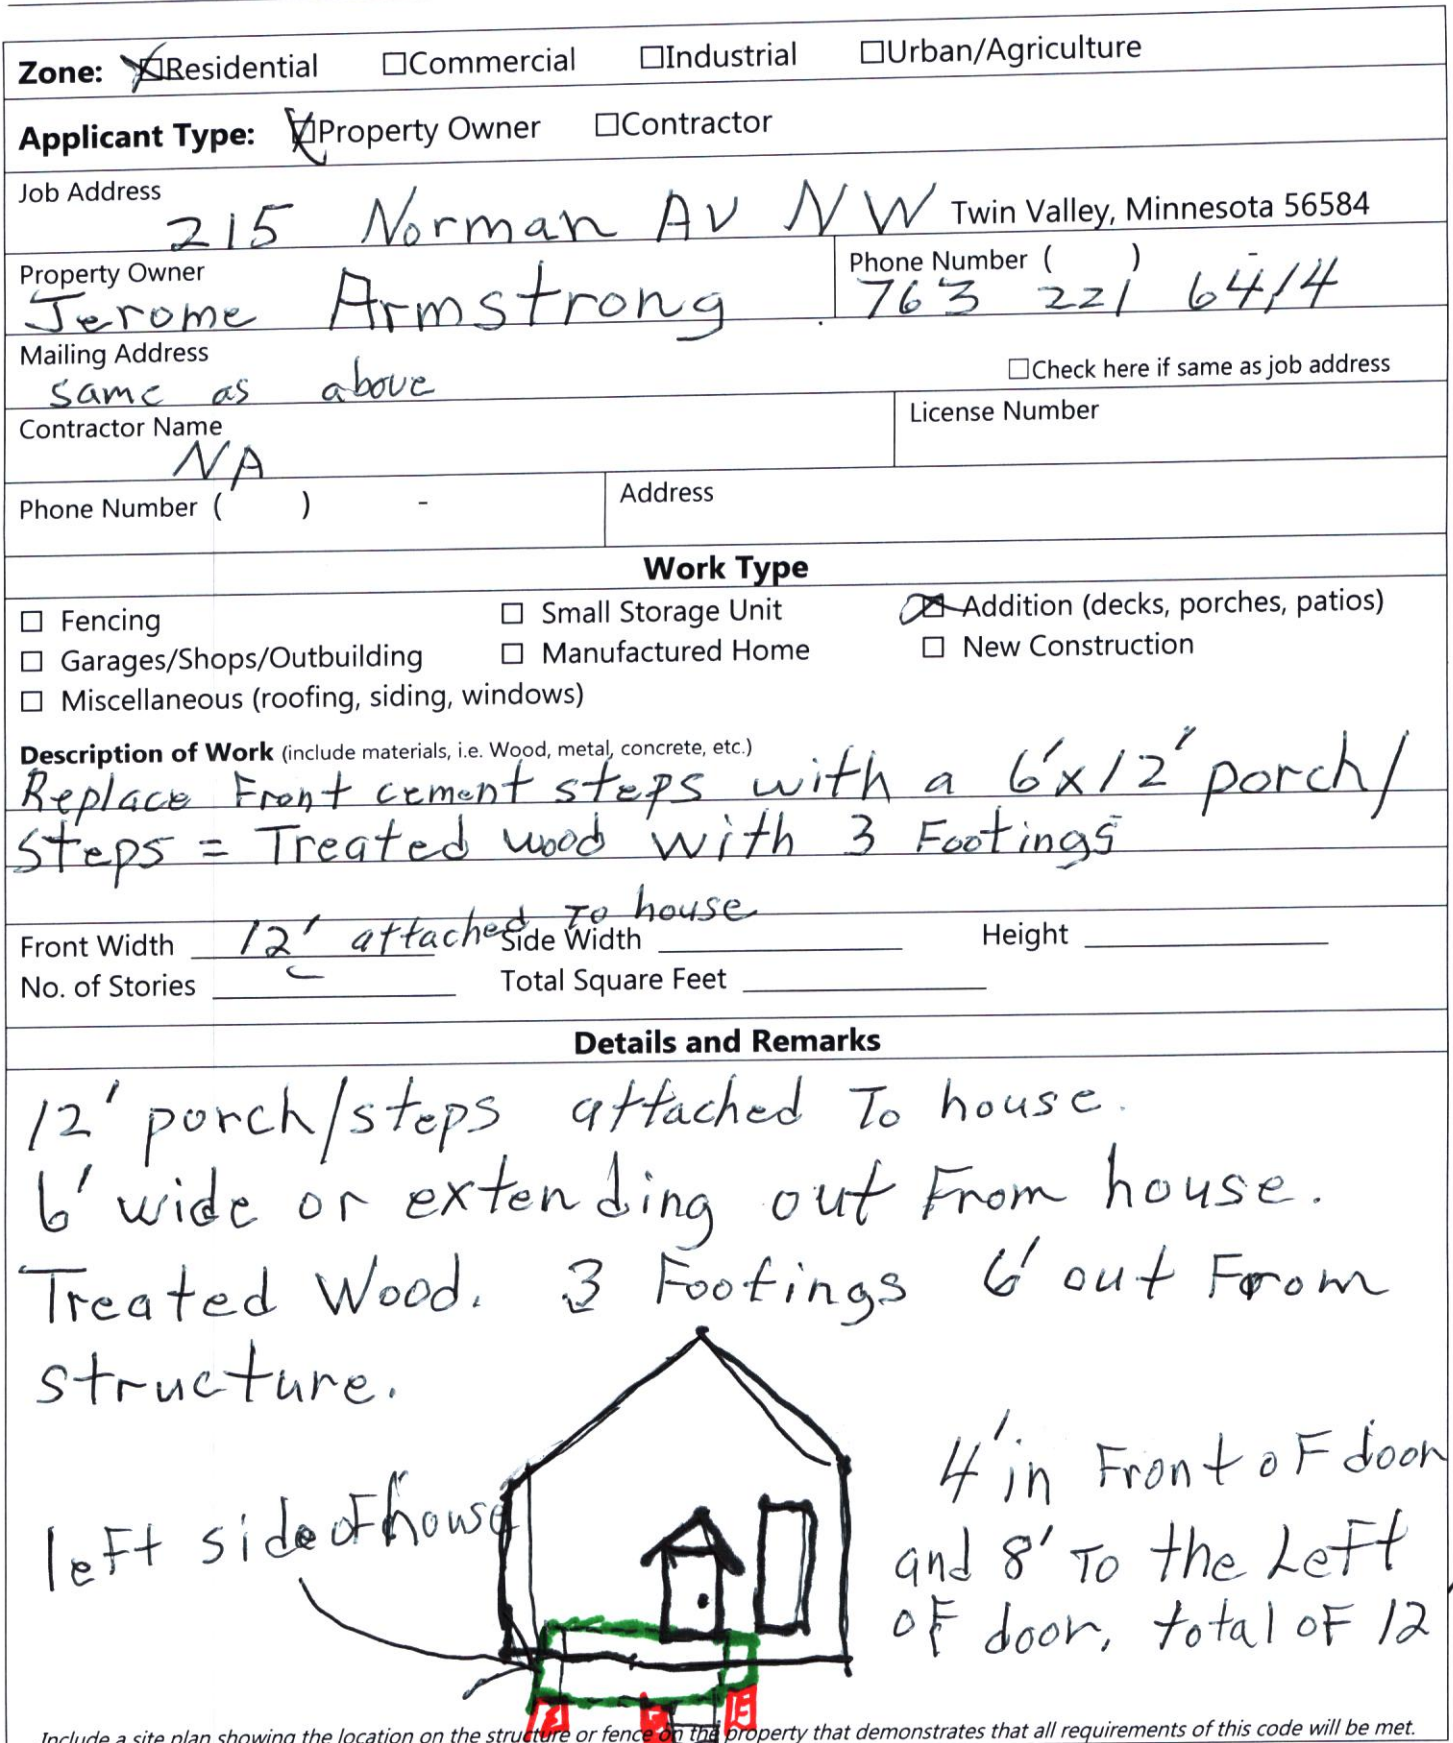 Zone: ☒Residential ☐Commercial ☐Industrial ☐Urban/Agriculture
Applicant Type: ☒Property Owner ☐Contractor
Job Address
215 Norman Av NW Twin Valley, Minnesota 56584
Property Owner Phone Number ( ) -
Jerome Armstrong 763 221 6414
Mailing Address
same as above ☐Check here if same as job address
Contractor Name License Number
NA
Phone Number ( ) - Address
Work Type
☐ Fencing ☐ Small Storage Unit ☒ Addition (decks, porches, patios)
☐ Garages/Shops/Outbuilding ☐ Manufactured Home ☐ New Construction
☐ Miscellaneous (roofing, siding, windows)
Description of Work (include materials, i.e. Wood, metal, concrete, etc.)
Replace Front cement steps with a 6'x12' porch/
steps = Treated wood with 3 Footings
Front Width 12' attached To house Side Width Height
No. of Stories Total Square Feet
Details and Remarks
12' porch/steps attached To house.
6' wide or extending out From house.
Treated Wood. 3 Footings 6' out From
structure.
left side of house
4' in Front of door
and 8' To the Left
of door, total of 12
F F F
Include a site plan showing the location on the structure or fence on the property that demonstrates that all requirements of this code will be met.